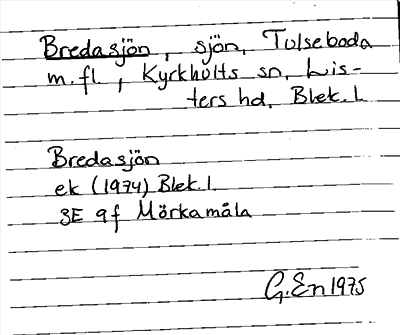 Bredasjön, sjön, Tulseboda
m. fl, Kyrkhults sn, Lis-
ters hd, Blek. l.
Bredasjön
ek (1974) Blek. l.
3E 9f Mörkamåla
G. En 1975